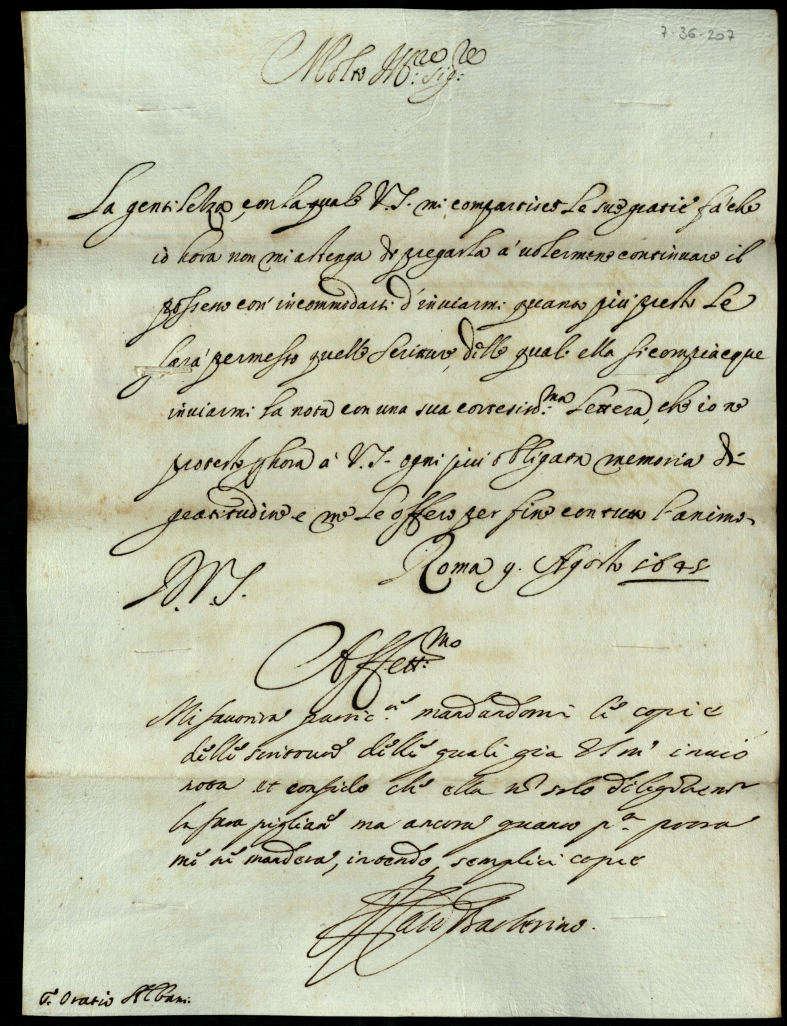 7-36-207
Molto Ill.re Sig.re
La gentilezza, con la quale V.S. mi compartisce le sue gratie fa che
io hora non mi astenga di pregarla a' volermene continuare il
possesso con incommodarsi d'inviarmi quanto più presto le
sarà permesso quelle scritture, delle quali ella si compiacque
inviarmi la nota con una sua cortesiss.ma lettera, che io ne
protesto hora à V.S. ogni più obligata memoria di
gratitudine e me le offero per fine con tutto l'animo.
Roma 9. Agosto 1645
D.V.S.
Affett.mo
Mi favorirà mandandomi le copie
delle scritture delle quali già V.S. m'inviò
nota et confido che ella nō solo diligētemte
le farà pigliare ma ancora quanto p.a potrà
me ne manderà, intendo semplici copie
Barberino.
S. Oratio Albani